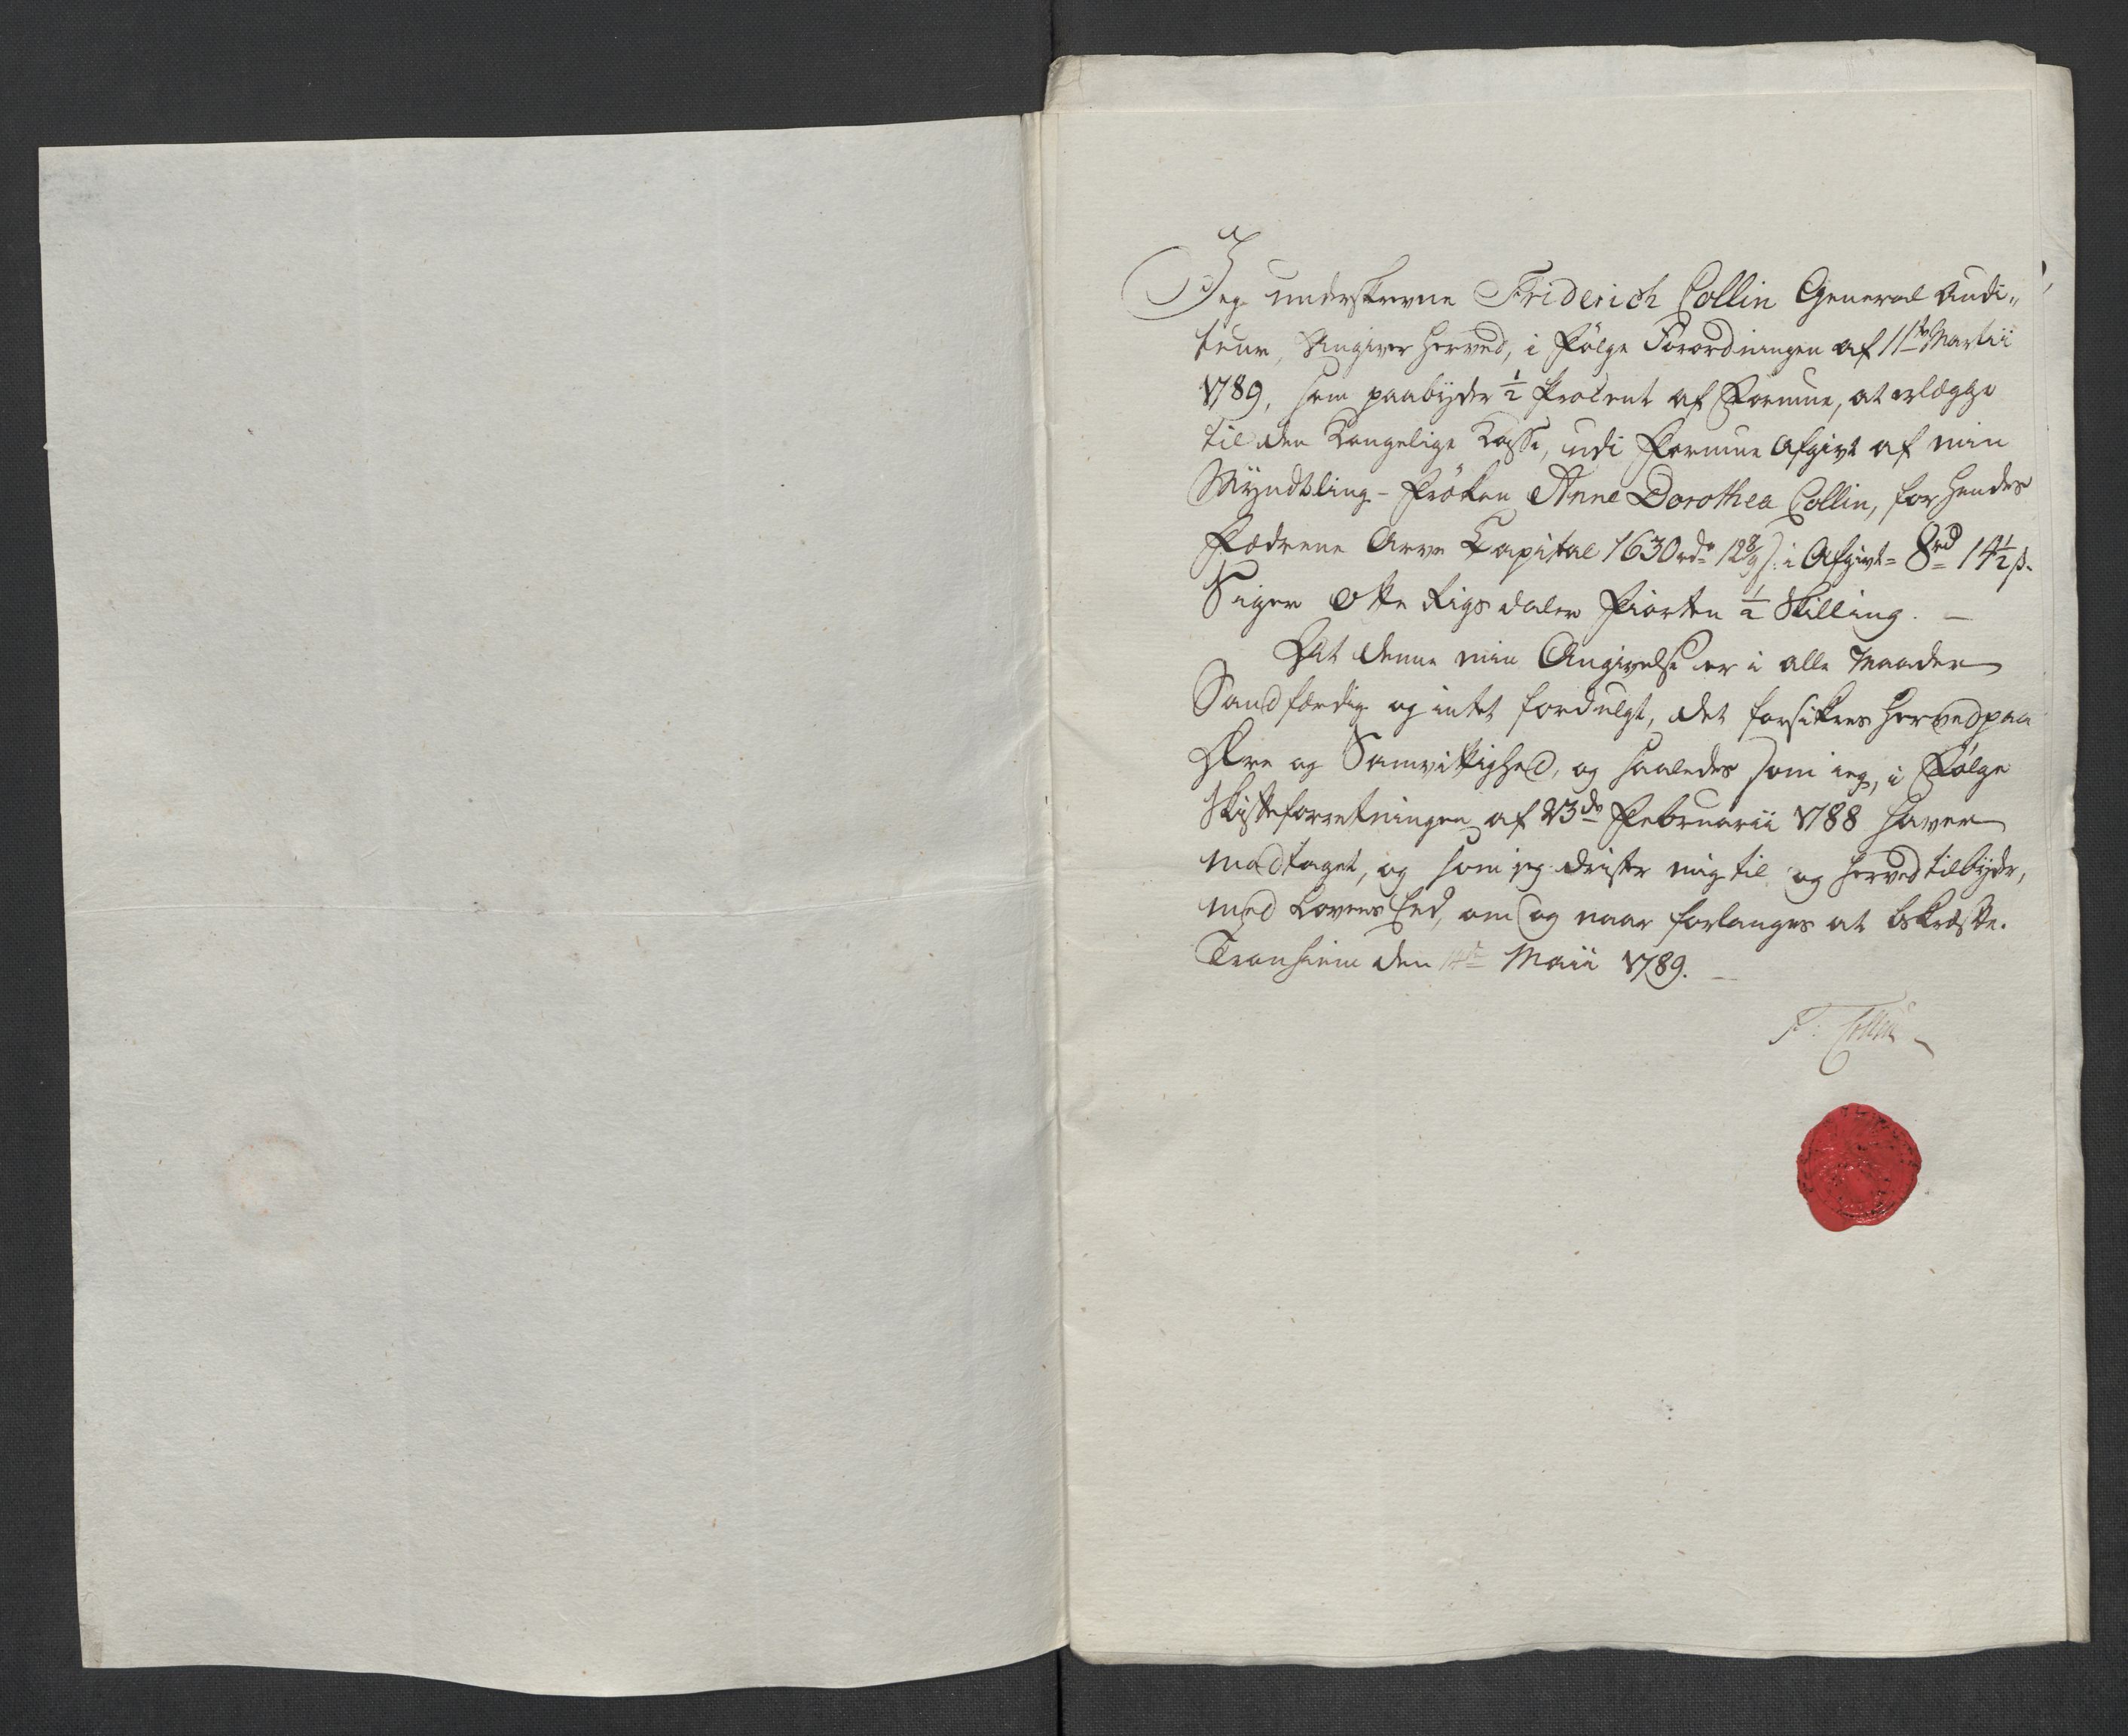 Jeg underskrevne Friderich Collin General Audi„
teur, Angiver herved, i Følge Forordningen af 11te Martii
1789, som paabyder ½ Procent af Formue, at erlægge
til den Kongelige Casse, udi Formue Afgivt af min
Myndtling - Frøken Anne Dorothea Collin, for hendes
Fædrene Arve Capital 1630 rdr 12 8/9 s: i Afgivt = 8 rd 14½ s.
Siger Otte Rigsdaler Fiorten ½ Skilling. —
At denne min Angivelse er i alle Maader
Sandfærdig og intet fordulgt, det forsikres herved paa
Ære og Samvittighed, og saaledes som jeg, i Følge
Skifteforretningen af 23de Februarii 1788 haver
modtaget, og som jeg drister mig til og herved tilbyder,
med Lovens Eed, om og naar forlanges at bekræfte.
Tronhiem den 14de Maii 1789. —
F: Collin